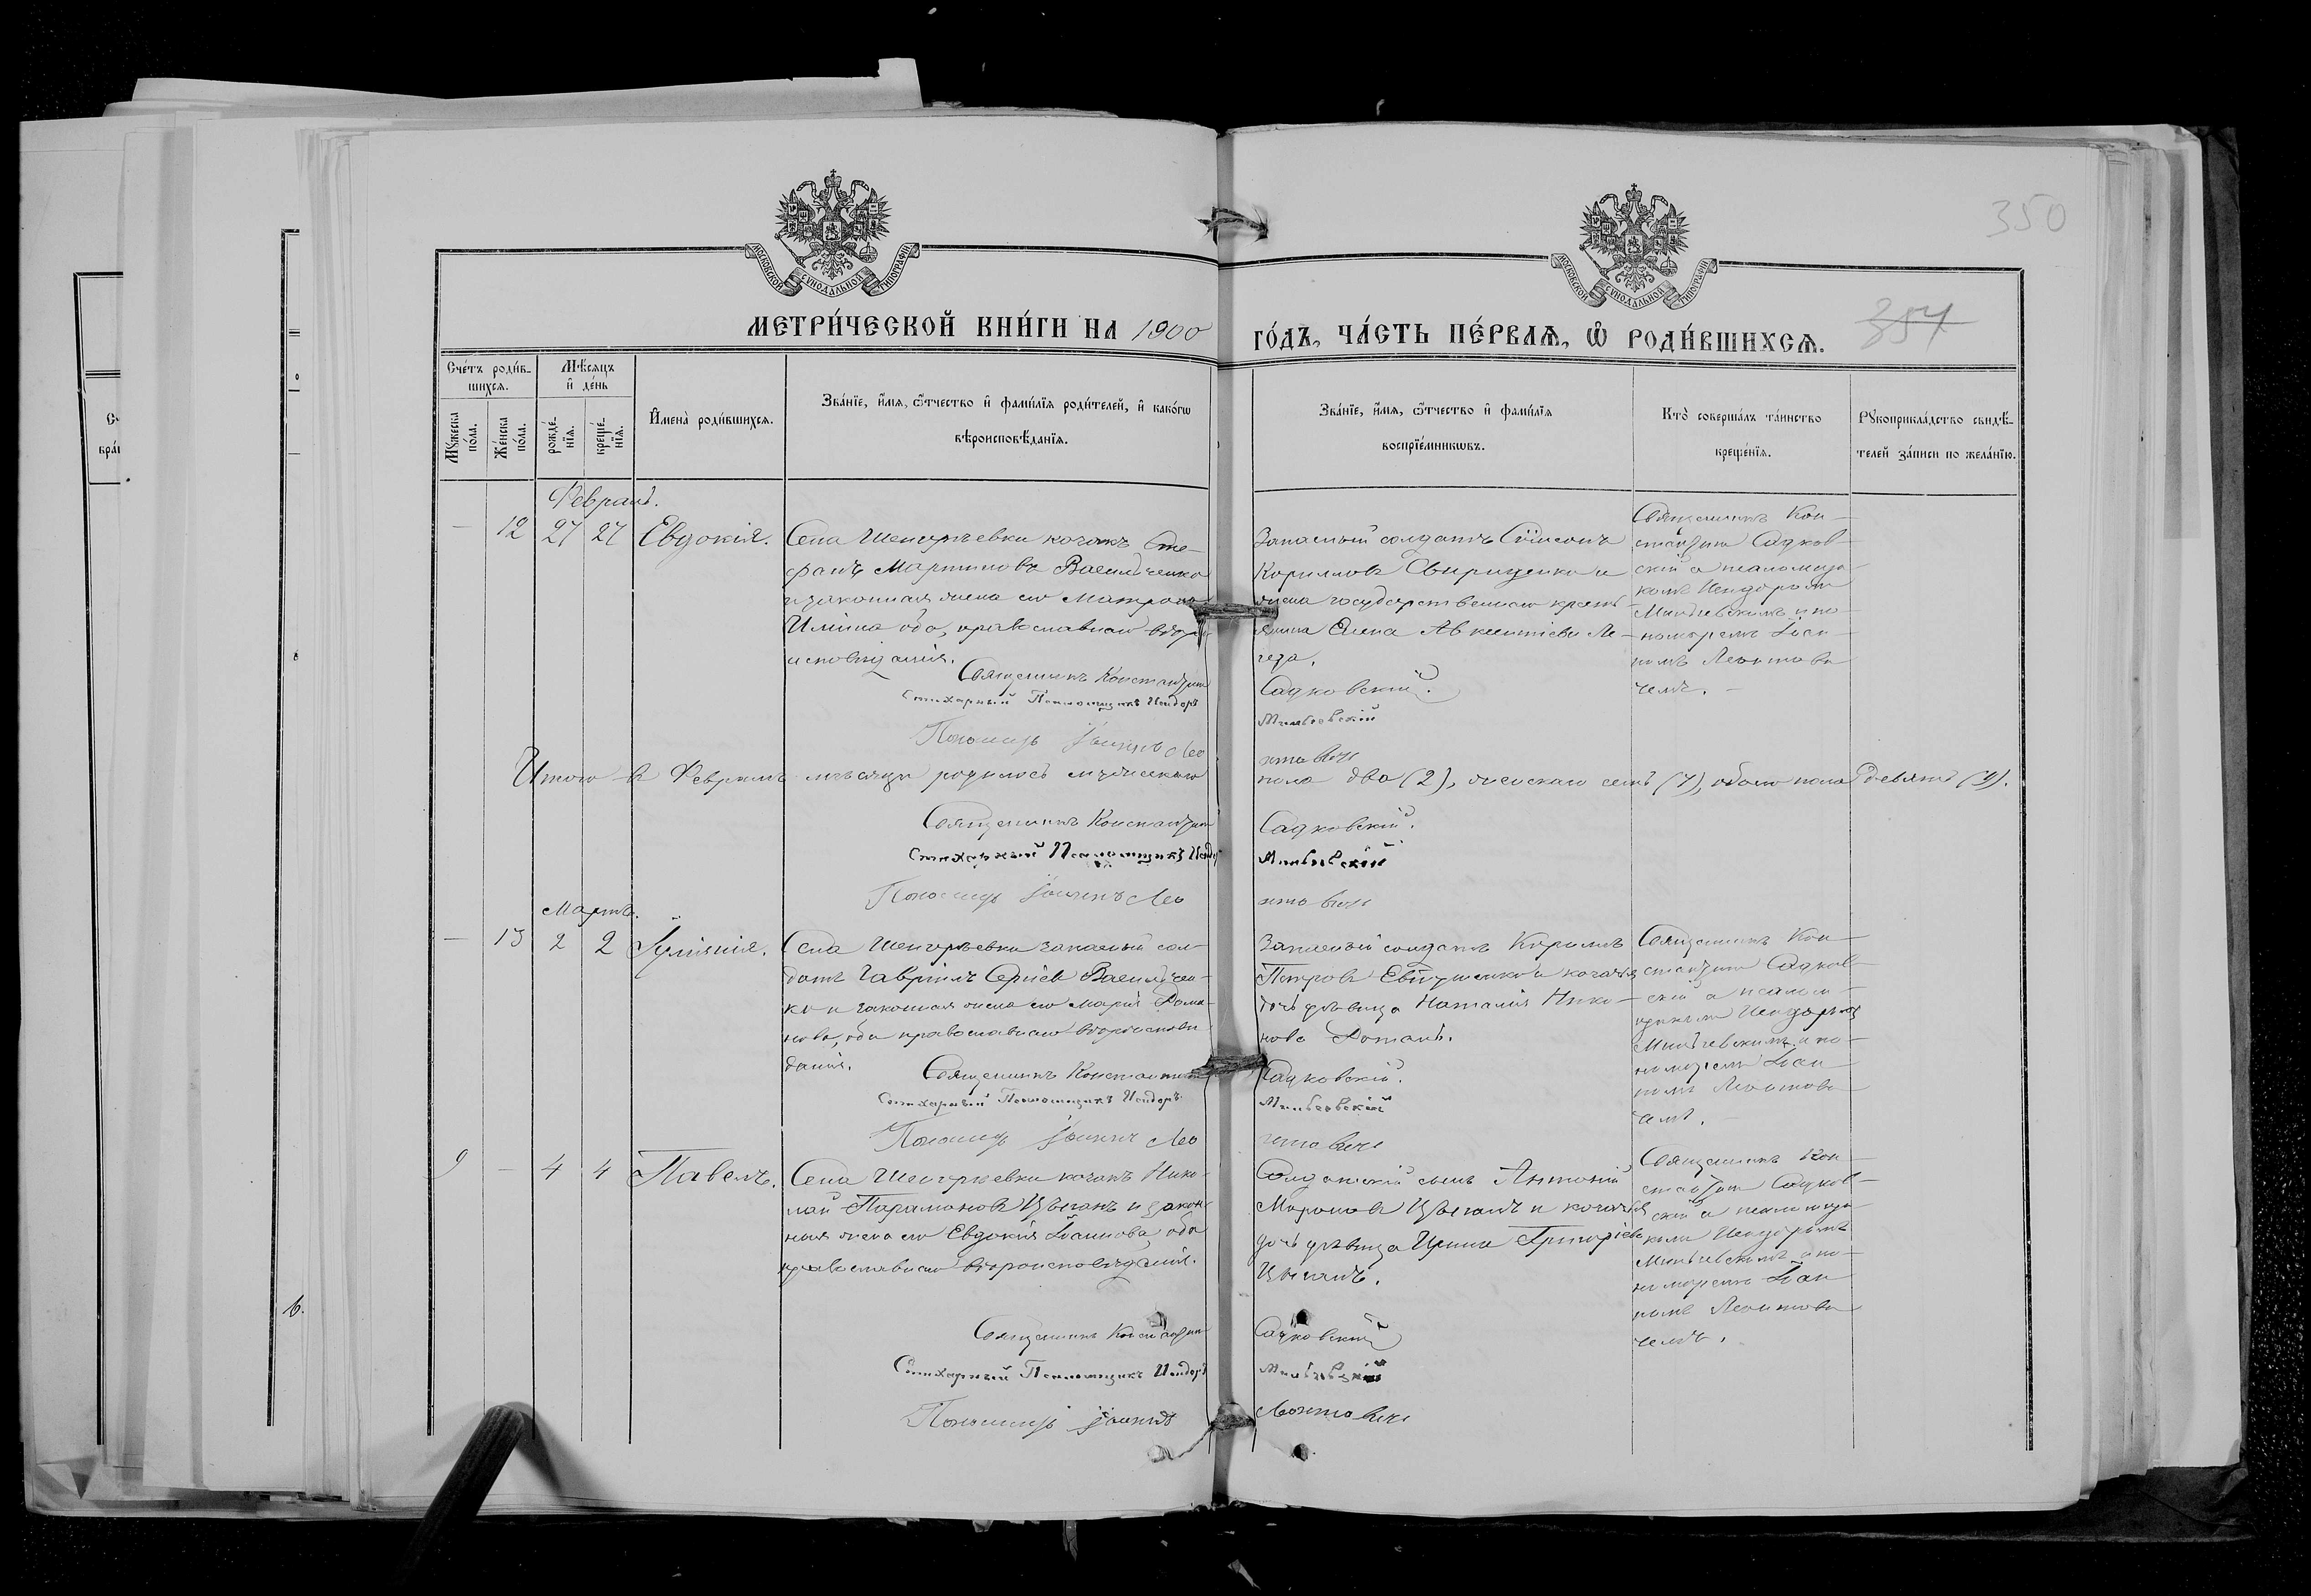 350
МЕТРИ́ЧЕСКОЙ КНИ́ГИ НА 1900 ГО́ДЪ, ЧА́СТЬ ПЕ́РВАѦ, Ѿ РОДИ́ВШИХСѦ.
357
Сче́тъ роди́в-
шихсѧ.
Мѣ́сяцъ
и҆ де́нь
Мꙋ́жеска
по́ла.
Же́нска
по́ла.
рожде́-
нїѧ.
креще́-
нїѧ.
И҆мена̀ роди́вшихсѧ.
Зва́нїе, и҆́мѧ, ѻ҆́тчество и҆ фами́лїѧ роди́телей, и҆ како́гѡ
вѣроисповѣ́данїѧ.
Зва́нїе, и҆́мѧ, ѻ҆́тчество и҆ фами́лїѧ
воспрїе́мникѡвъ.
Кто̀ соверша́лъ та́инство
креще́нїѧ.
Рꙋкоприкла́дство свидѣ́-
телей за́писи по жела́нїю.
Февраль.
— 12 27 27 Евдокія.
Села Шенгурѣевки козакъ Сте-
фанъ Мартиновъ Васильченко
и законная жена его Матрона
Илиина оба, православнаго вѣро-
исповѣданія.
Священникъ Константинъ
Стихарный Псаломщикъ Исидоръ
Пономарь Іоаннъ Лео
Запасный солдатъ Симеонъ
Кориловъ Свириденко и
жена государственнаго кресть-
янина Елена Авксентіева Ле-
геза.
Садковскій.
Мильѣевскій
нтовичъ
Священникъ Кон-
стантинъ Садков-
скій с псаломщи-
комъ Исидоромъ
и по-
номаремъ Іоан-
номъ Леонтови-
чемъ.
Итого въ Февралѣ мѣсяцѣ родилось мужескаго пола два (2), женскаго семь (7), обоего пола девять (9).
Священникъ Константинъ Садковскій.
Стихарный Псаломщикъ Исидоръ
Пономарь Іоаннъ Леонтовичъ
Мартъ.
— 13 2 2 Іуліанія.
Села Шенгурѣевки запасный сол-
датъ Гавріилъ Сергіевъ Васильчен-
ко и законная жена его Марія Рома-
нова, оба православнаго вѣроисповѣ-
данія.
Священникъ Константинъ
Стихарный Псаломщикъ Исидоръ
Пономарь Іоаннъ Лео
Запасный солдатъ Кориллъ
Петровъ Евтушенко и козачья
дочь дѣвица Наталія Нико-
нова
Садковскій.
нтовичъ
Священникъ Кон-
стантинъ Садков-
скій с псалом-
щикомъ Исидоромъ
и по-
номаремъ Іоан-
номъ Леонтови-
чемъ.
9 — 4 4 Павелъ.
Села Шенгурѣевки козакъ Нико-
лай Парамоновъ Цыганъ и закон-
ная жена его Евдокія Іоаннова, оба
православнаго вѣроисповѣданія.
Священникъ Константинъ
Стихарный Псаломщикъ Исидоръ
Пономарь Іоаннъ
Солдатскій сынъ Антоній
Мироновъ Цыганъ и козачья
дочь дѣвица Ирина Григоріева
Цыганъ.
Садковскій
Леонтовичъ
Священникъ Кон-
стантинъ Садков-
скій с псаломщи-
комъ Исидоромъ
и по-
номаремъ Іоан-
номъ Леонтови-
чемъ.